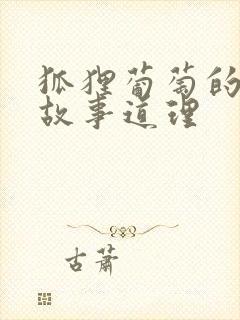 狐狸葡萄的
故事道理
古萧